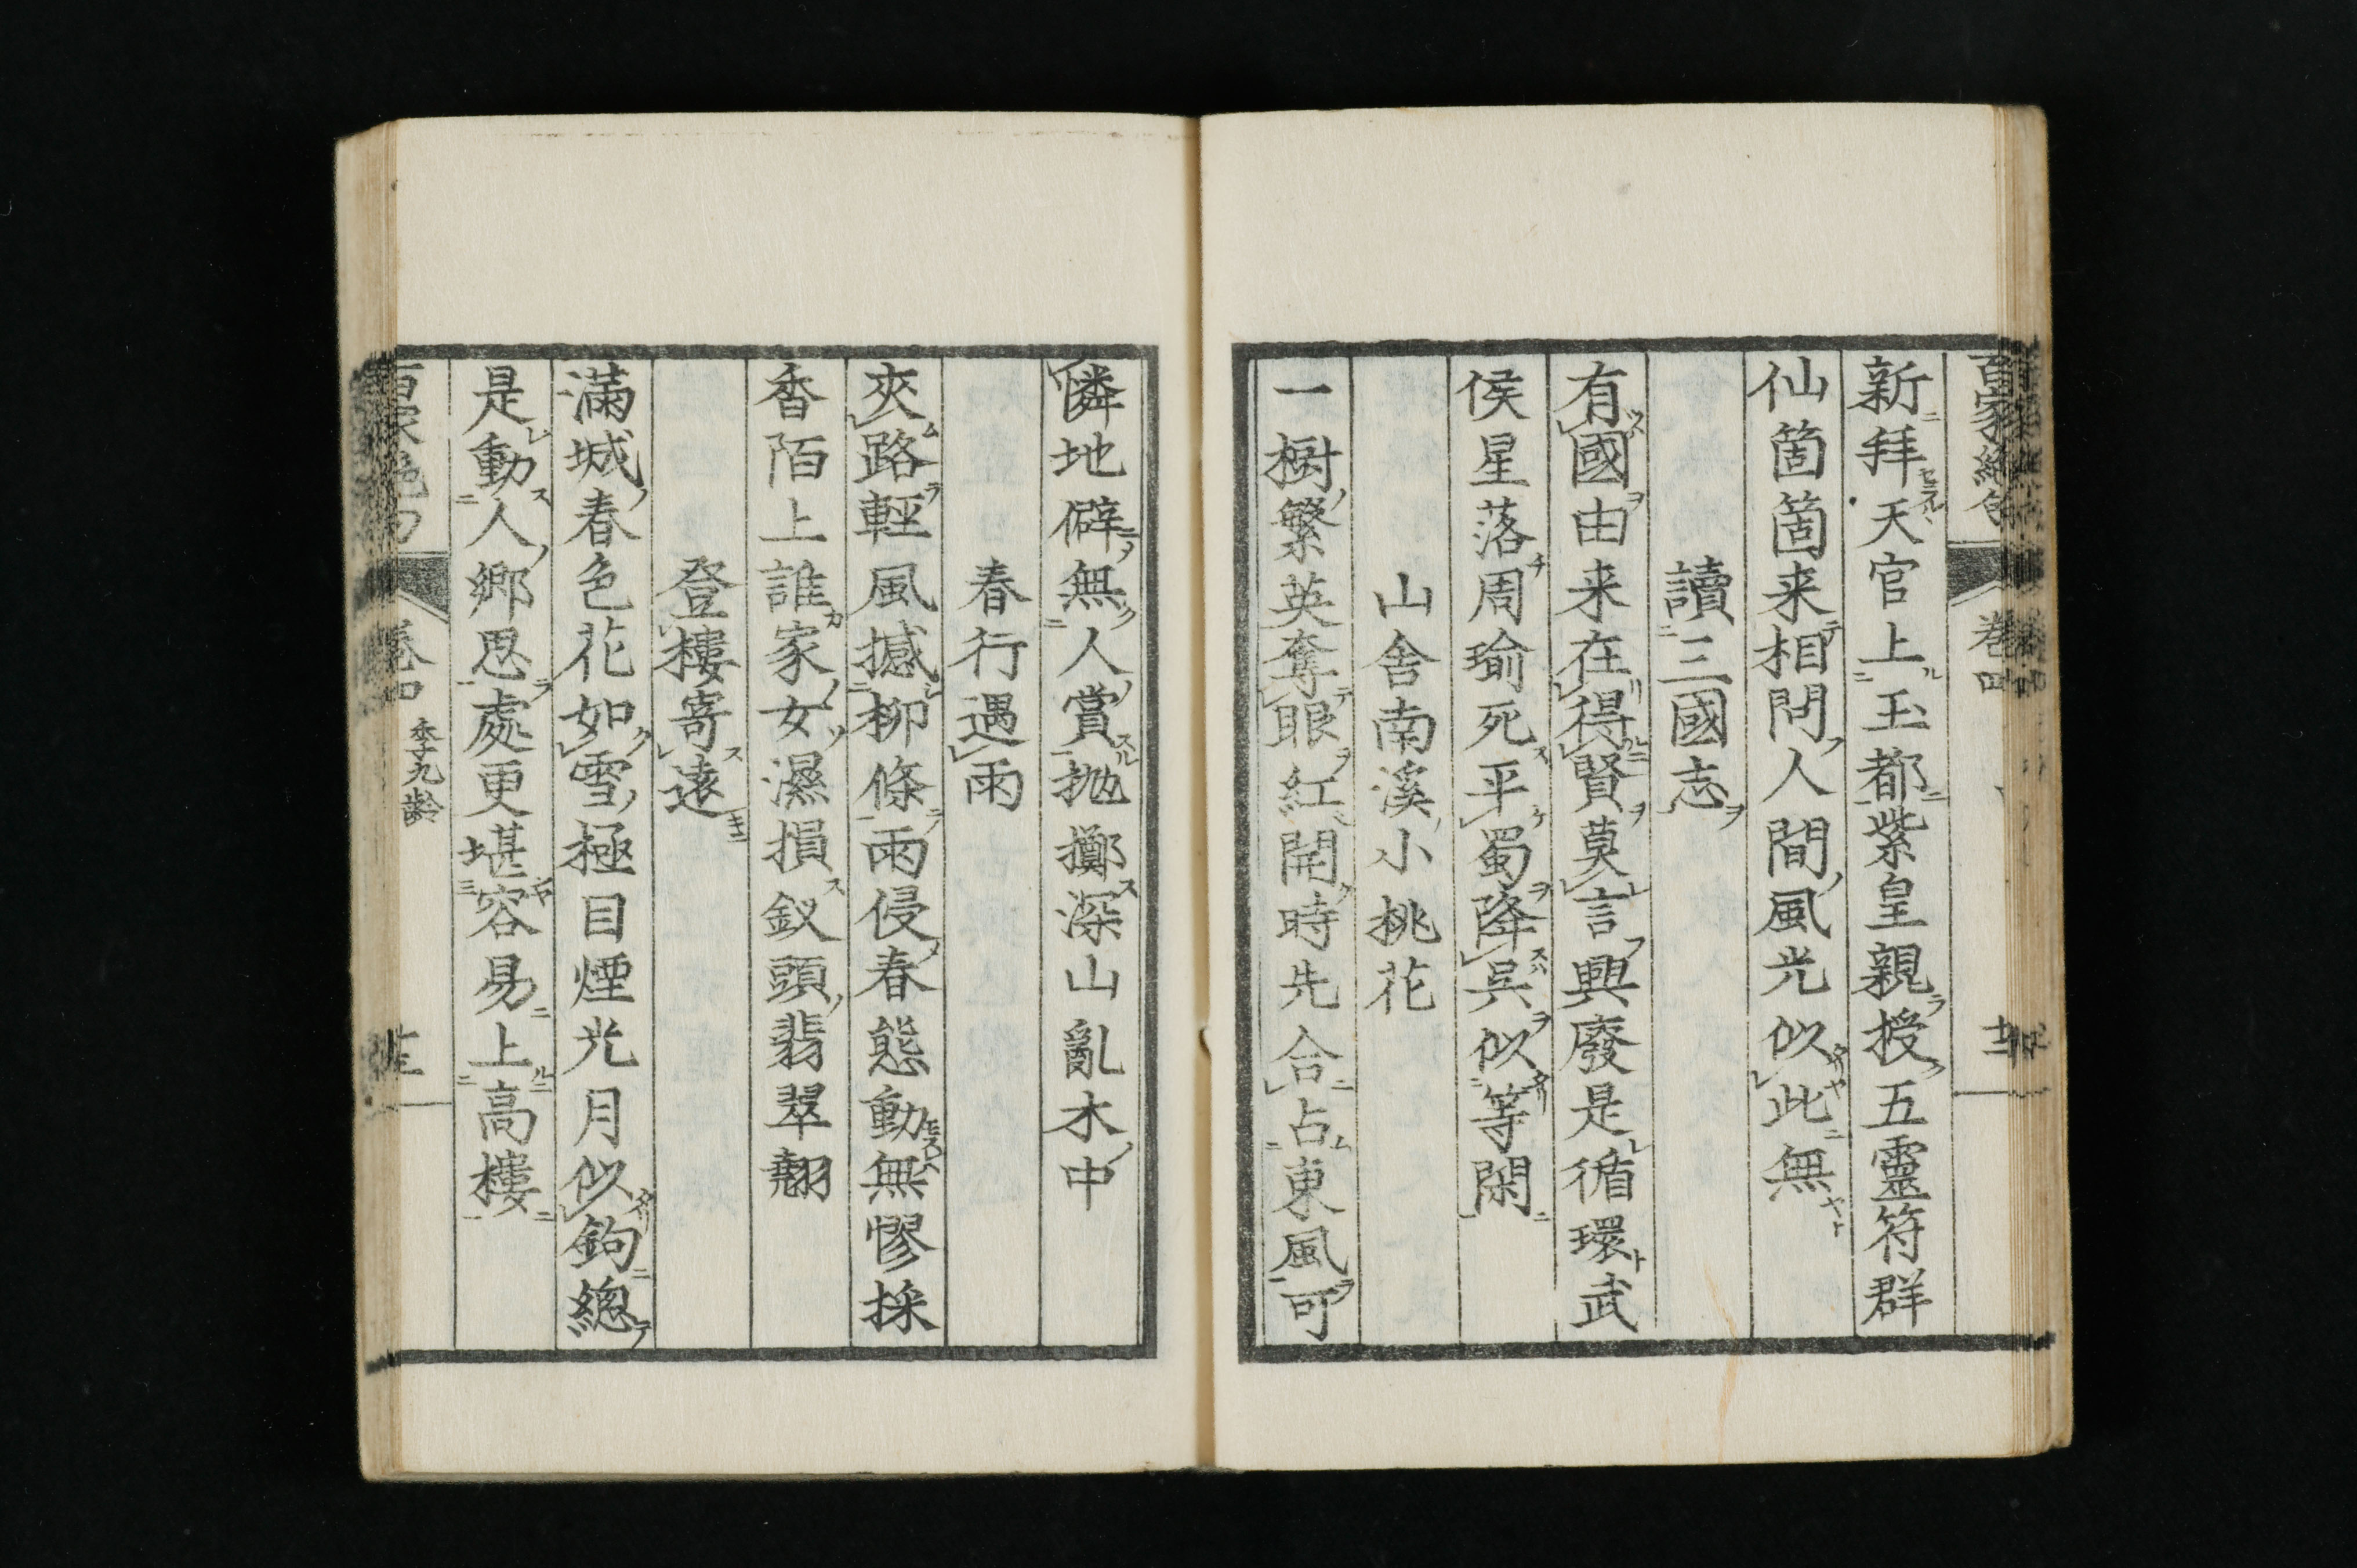 百家絶句 卷四
新拜天官上玉都紫皇親授五靈符群
仙箇箇来相問人間風光似此無
讀三國志
有國由来在得賢莫言興廢是循環武
侯星落周瑜死平蜀降呉似等閑
山舎南溪小桃花
一樹繁英奪眼紅開時先合占東風可
憐地僻無人賞抛擲深山亂木中
春行遇雨
夾路輕風撼柳條雨侵春態動無憀採
香陌上誰家女濕損釵頭翡翠翹
登樓寄遠
滿城春色花如雪極目煙光月似鉤總
是動人郷思處更堪容易上高樓
百家絶句 卷四 李九齡